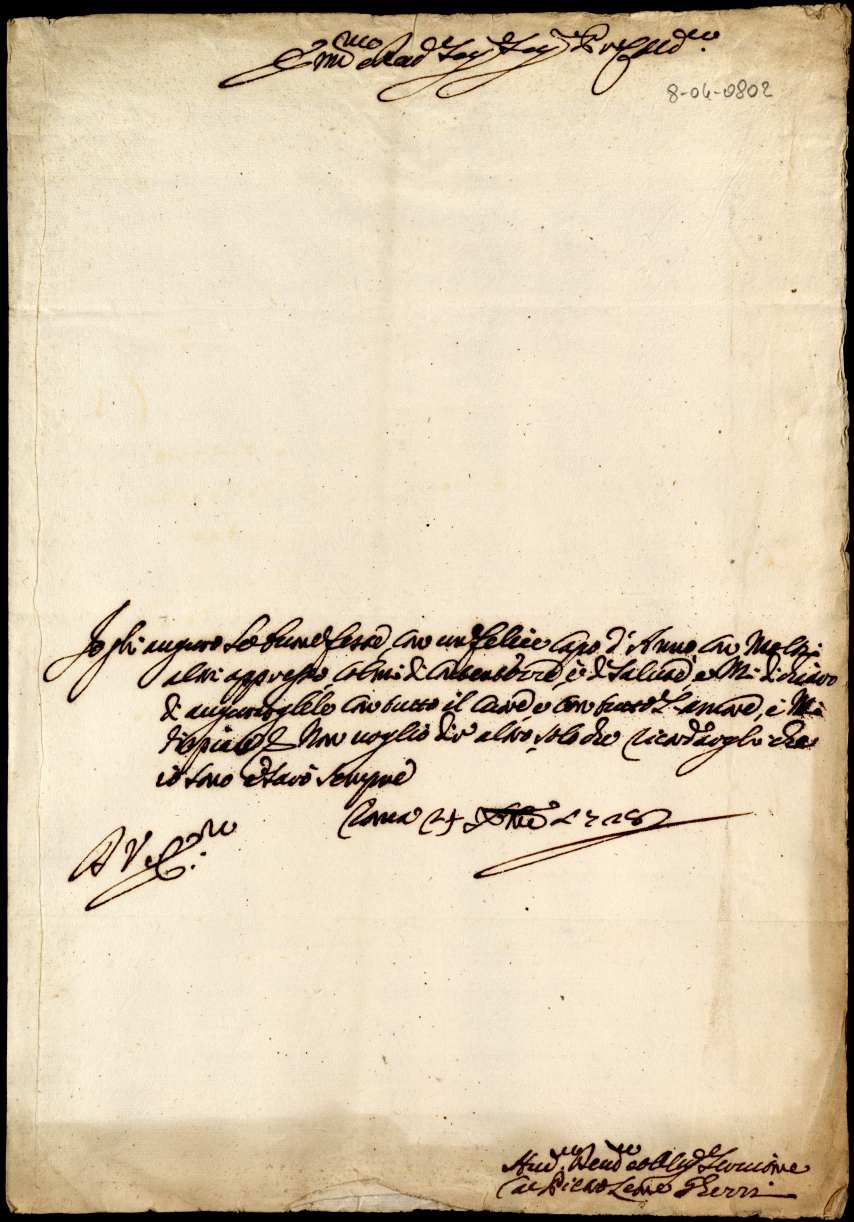 Em.mo e Rev.
8-04-0802
Io gli auguro le buone feste con un felice Capo d'Anno, con Moltri
altri appresso Colmi di Contentezze, e di Salute, e Mi dichiaro
di augurarglielo con tutto il Cuore e con tutto l'amore, e Mi
Non voglio dir altro, solo che ricordargli che
io sono e sarò sempre
Roma 24 Xbre 1728
Di V. Em.
Hum. Dev. et Obblig. Servitore
Ghezzi